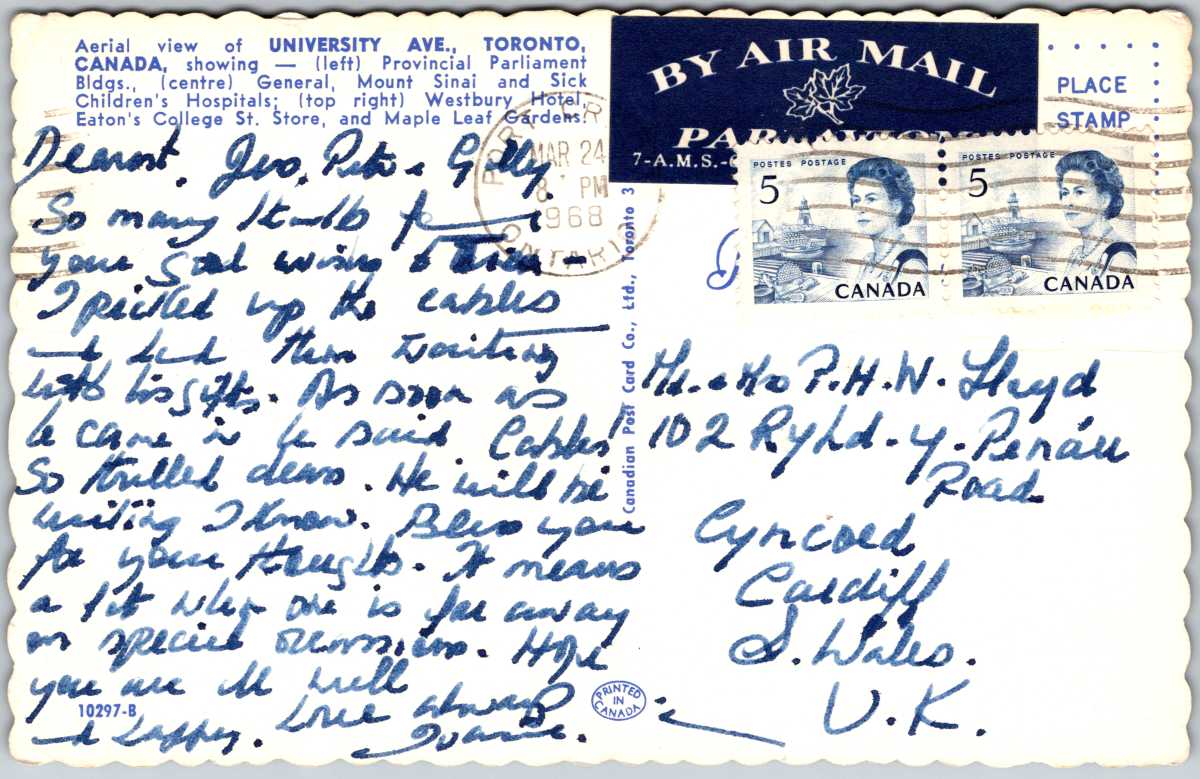 Aerial view of UNIVERSITY AVE., TORONTO,
CANADA, showing — (left) Provincial Parliament
Bldgs., (centre) General, Mount Sinai and Sick
Children's Hospitals; (top right) Westbury Hotel,
Eaton's College St. Store, and Maple Leaf Gardens.
BY AIR MAIL
PAR AVION
7-A.M.S.-
PLACE
STAMP
MAR 24
8 PM
1968
ONTARIO
POSTES POSTAGE
5
CANADA
POSTES POSTAGE
5
CANADA
Dearest
So many
your good
I picked up the cables
and had them waiting
with his gifts. As soon as
he came in he said Cables!
So thrilled dears. He will be
writing I know. Bless you
for your thoughts. It means
a lot when one is far away
on special occasions. Hope
you are all well
and happy. Love always
Canadian Post Card Co., Ltd., Toronto 3
Mr. & Mrs P. H. W. Lloyd
102 Ryhd-y-Penau
Road
Cyncoed
Cardiff
S. Wales.
U.K.
10297-B
PRINTED
IN
CANADA